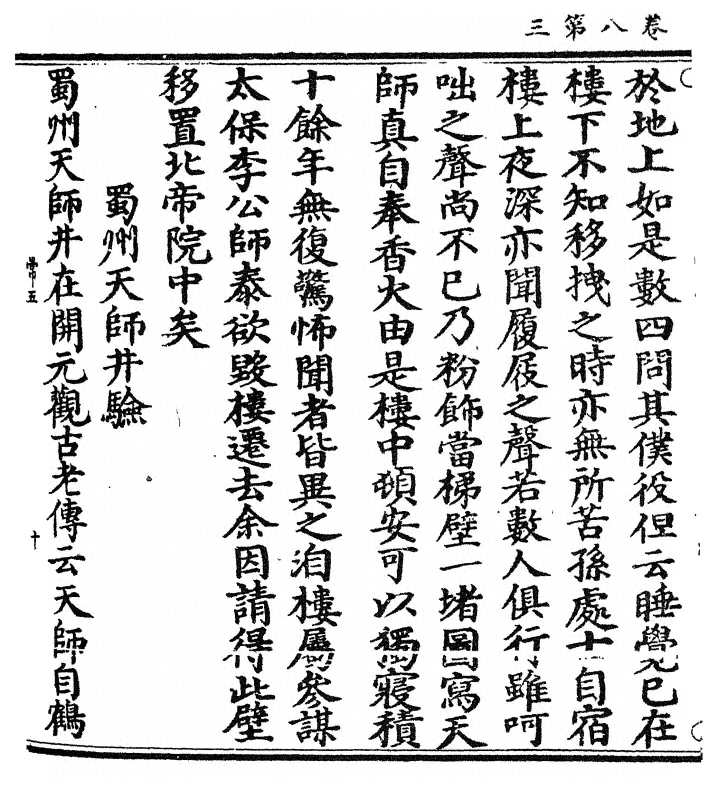 三第八卷
於地上如是數四問其僕役但云睡覺已在
樓下不知移拽之時亦無所苦孫處士自宿
樓上夜深亦聞履屐之聲若數人俱行雖呵
咄之聲尚不已乃粉飾當梯壁一堵圖寫天
師真自奉香火由是樓中頓安可以獨寢積
十餘年無復驚怖聞者皆異之洎樓屬參謀
太保李公師泰欲毀樓遷去余因請得此壁
移置北帝院中矣
蜀州天師井驗
蜀州天師井在開元觀古老傳云天師自鶴
常五
十